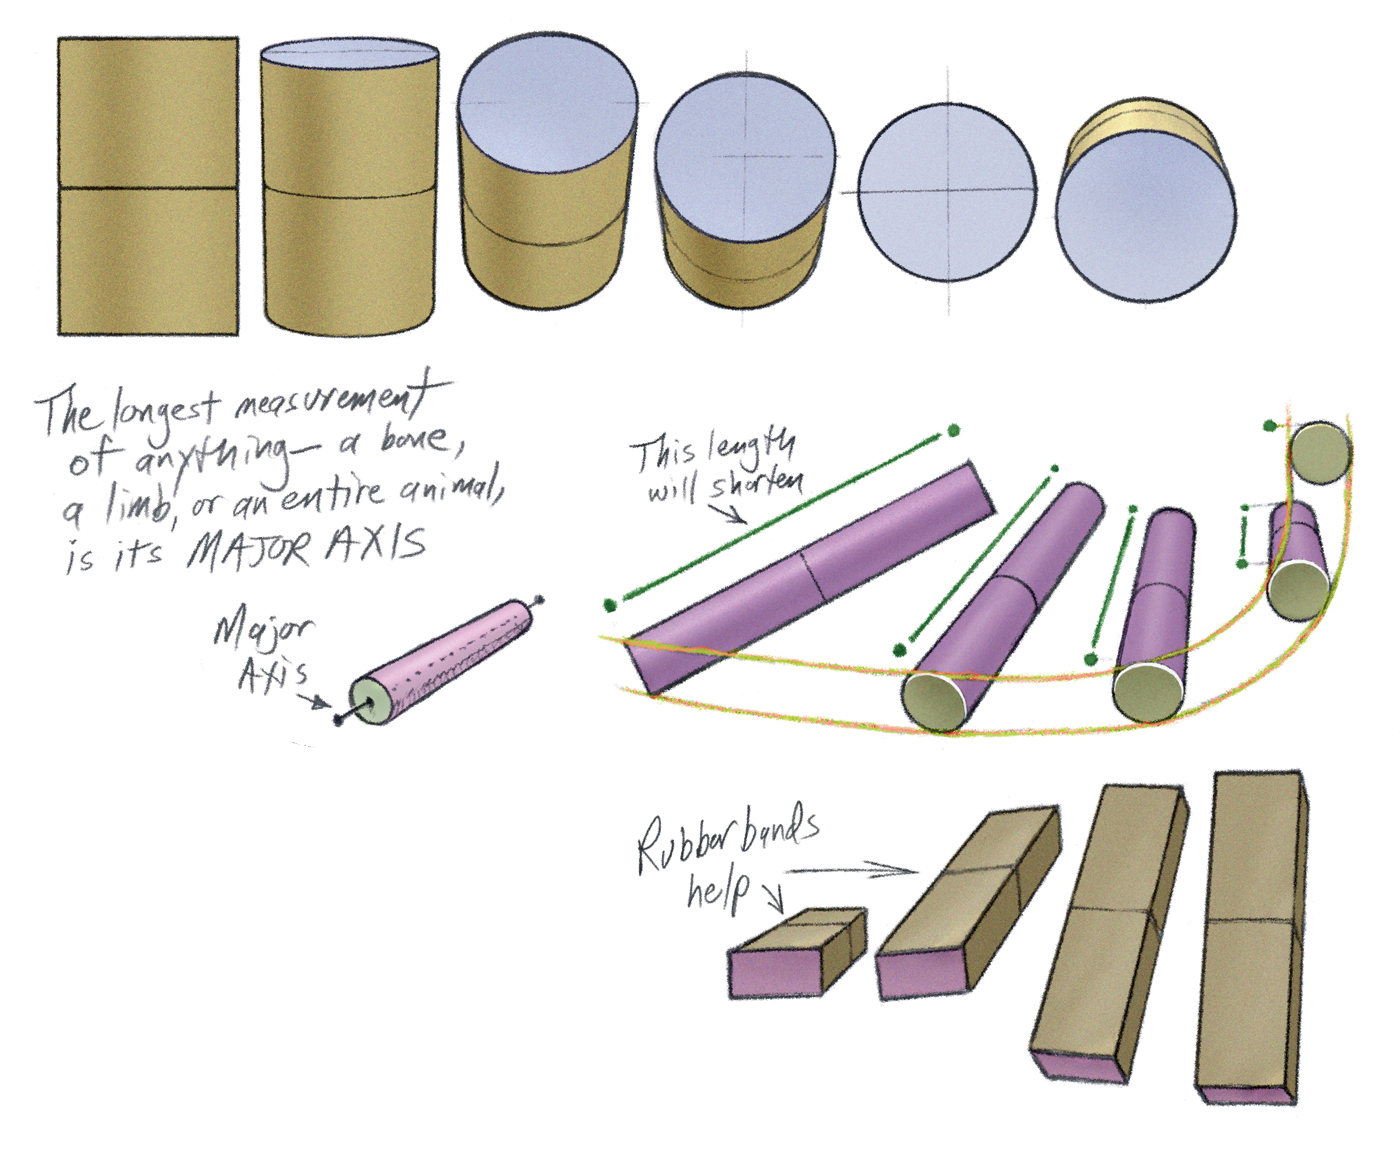 The longest measurement
of anything— a bone,
a limb, or an entire animal,
is its MAJOR AXIS
This length
will shorten
Major
Axis
Rubber bands
help